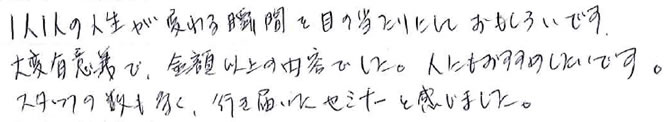 1人1人の人生が変わる瞬間を目の当たりにして おもしろいです.
大変有意義で、金額以上の内容でした。人にもおすすめしたいです。
スタッフの数も多く、行き届いたセミナーと感じました。